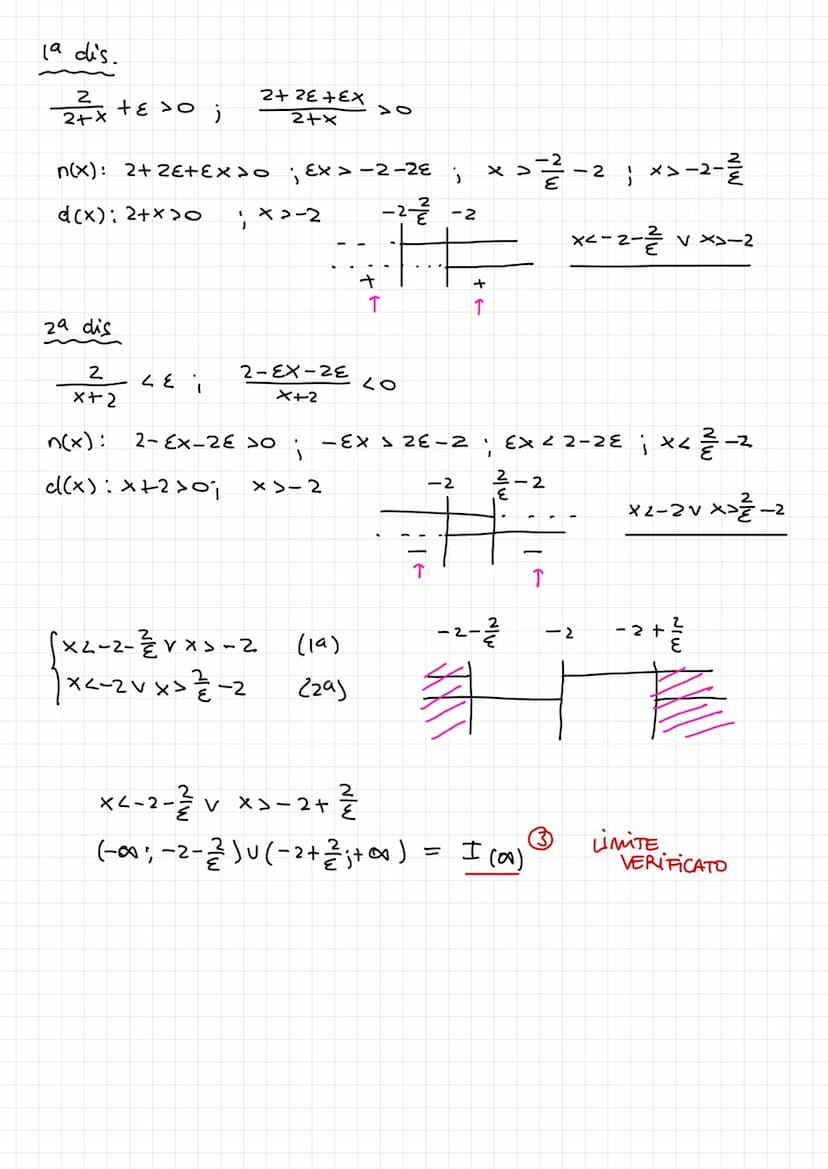 1ª dis.
2/(2+x) + ε > 0 ; (2+2ε+εx)/(2+x) > 0
n(x): 2+2ε+εx>0 ; εx > -2-2ε ; x > -2/ε -2 ; x > -2-2/ε
d(x): 2+x>0 ; x>-2 -2-2/ε -2
x<-2-2/ε ∨ x>-2
+ +
↑ ↑
2ª dis
2/(x+2) < ε ; (2-εx-2ε)/(x+2) < 0
n(x): 2-εx-2ε >0 ; -εx > 2ε-2 ; εx < 2-2ε ; x < 2/ε -2
d(x): x+2>0; x>-2 -2 2/ε -2
x<-2 ∨ x>2/ε -2
− −
↑ ↑
{ x<-2-2/ε ∨ x>-2 (1ª) -2-2/ε -2 -2+2/ε
x<-2 ∨ x>2/ε -2 (2ª)
x<-2-2/ε ∨ x>-2+2/ε
(-∞; -2-2/ε) ∪ (-2+2/ε; +∞) = I(∞) ③ LIMITE
VERIFICATO